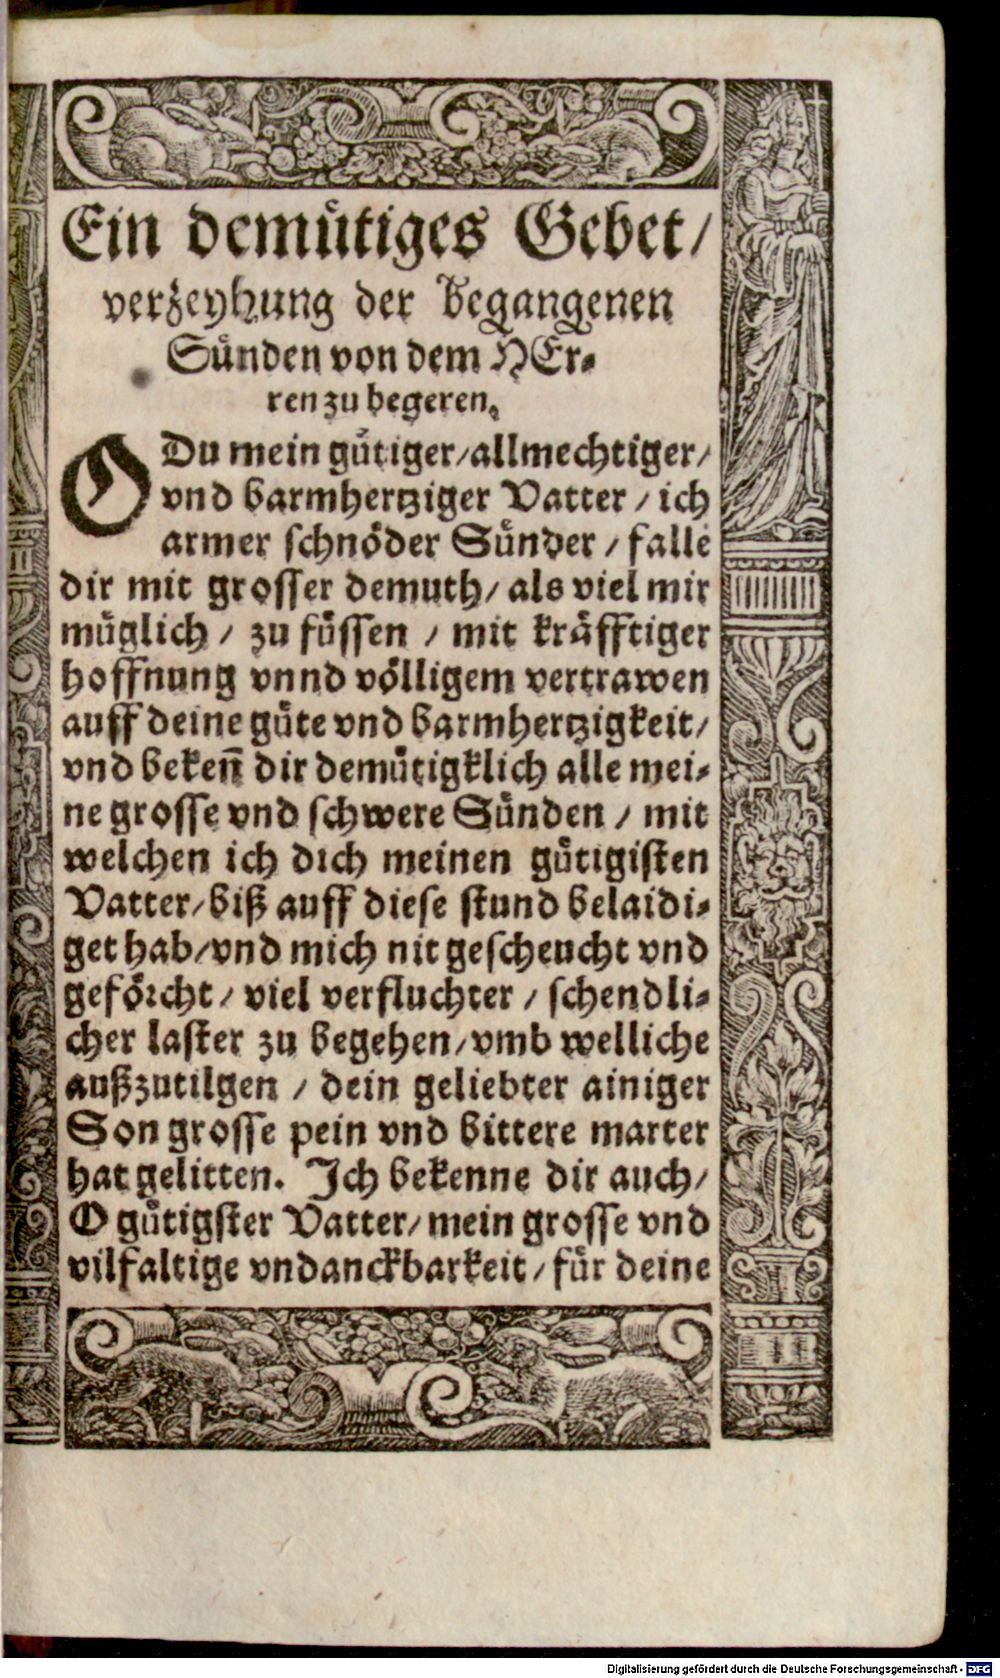 Ein demütiges Gebet/
verzeyhung der begangenen
Sünden von dem HEr⸗
ren zu begeren.
O Du mein gütiger/allmechtiger/
vnd barmhertziger Vatter / ich
armer schnöder Sünder / falle
dir mit grosser demuth/ als viel mir
müglich / zu füssen / mit kräfftiger
hoffnung vnnd völligem vertrawen
auff deine güte vnd barmhertzigkeit/
vnd bekeñ dir demütigklich alle mei⸗
ne grosse vnd schwere Sünden / mit
welchen ich dich meinen gütigisten
Vatter/biß auff diese stund belaidi⸗
get hab/vnd mich nit gescheucht vnd
geförcht/ viel verfluchter / schendli⸗
cher laster zu begehen/vmb welliche
außzutilgen / dein geliebter ainiger
Son grosse pein vnd bittere marter
hat gelitten. Ich bekenne dir auch/
O gütigster Vatter/mein grosse vnd
vilfaltige vndanckbarkeit/für deine
Digitalisierung gefördert durch die Deutsche Forschungsgemeinschaft - DFG